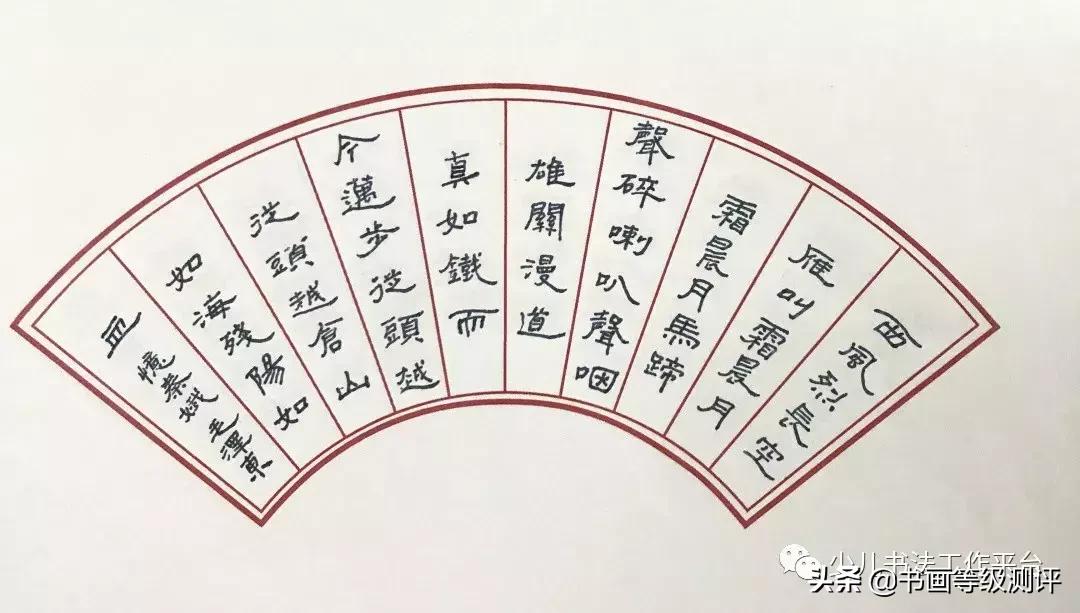 西風烈長空
雁叫霜晨月
霜晨月馬蹄
聲碎喇叭聲咽
雄關漫道
真如鐵而
今邁步從頭越
從頭越倉山
如海殘陽如
血
憶秦娥 毛澤東
少儿书法工作平台
头条 @书画等级测评